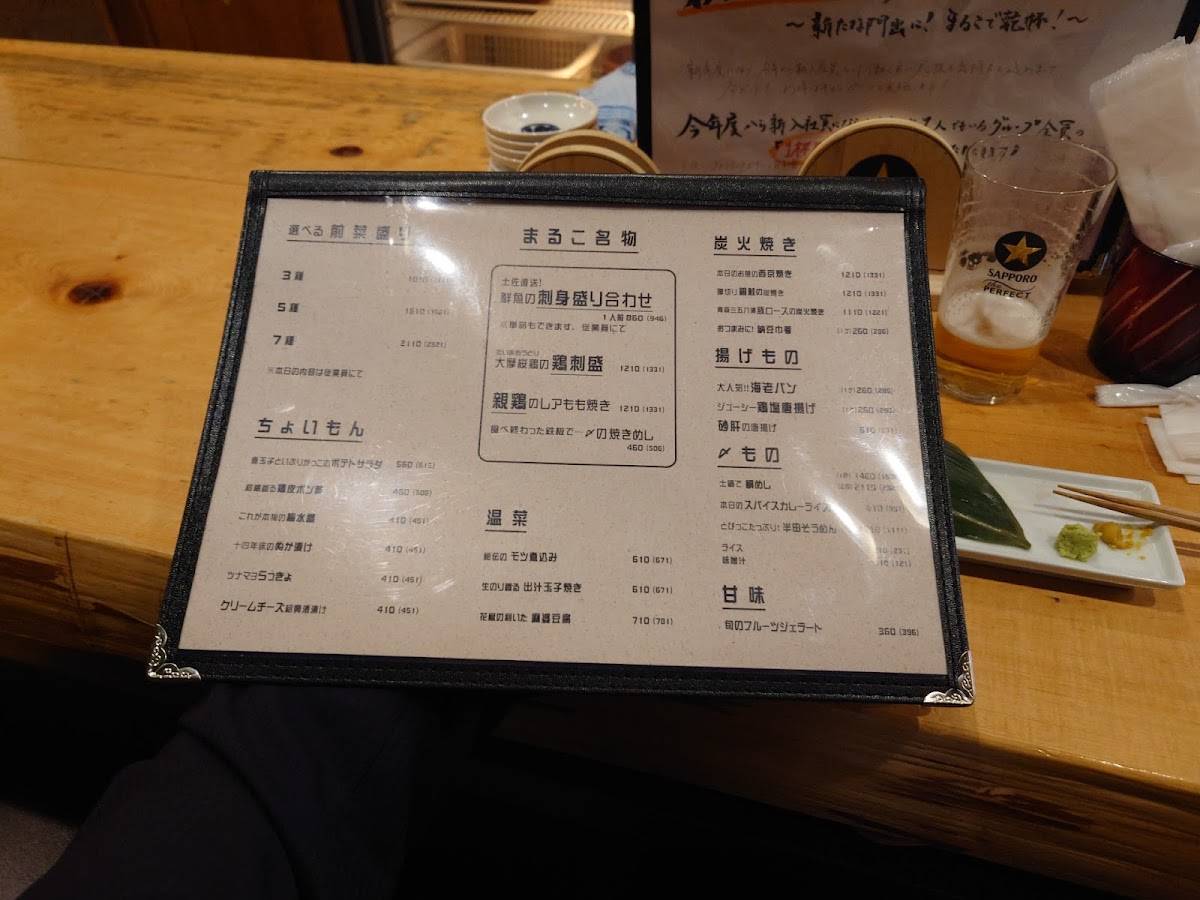 ～新たな門出に！まるこで乾杯！～
今年度から新入社員に
グループ全員の
選べる 前菜盛り
3種
5種
7種 2110 (2321)
※本日の内容は従業員にて
ちょいもん
燻玉子といぶりがっこのポテトサラダ 560 (616)
鶏皮ポン酢 460 (506)
これが本格の 410 (451)
十四年床のぬか漬け 410 (451)
ツナマヨらっきょ 410 (451)
クリームチーズ 410 (451)
まるこ名物
土佐直送！
鮮魚の刺身盛り合わせ
1人前 860 (946)
※単品もできます。従業員にて
大摩桜鶏の鶏刺盛 1210 (1331)
親鶏のレアもも焼き 1210 (1331)
食べ終わった鉄板で…〆の焼きめし
460 (506)
温菜
秘伝の モツ煮込み 610 (671)
生のり香る 出汁玉子焼き 610 (671)
花椒の利いた 麻婆豆腐 710 (781)
炭火焼き
本日のお魚の西京焼き 1210 (1331)
1210 (1331)
豚ロースの炭火焼き 1110 (1221)
おつまみに！納豆巾着 260 (286)
揚げもの
大人気！！海老パン 260 (286)
ジューシー鶏塩唐揚げ 260
砂肝の唐揚げ 610 (671)
〆もの
土鍋で 鯛めし
本日のスパイスカレーライス
とびっこたっぷり！半田そうめん
ライス
味噌汁
甘味
旬のフルーツジェラート 360 (396)
SAPPORO
The
PERFECT